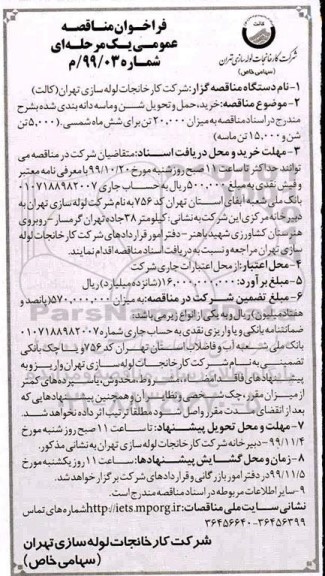 فراخوان مناقصه
عمومی یک مرحله‌ای
شماره ۹۹/۰۳/م
کالت
شرکت کارخانجات لوله سازی تهران
(سهامی خاص)
۱-نام دستگاه مناقصه گزار: شرکت کارخانجات لوله سازی تهران (کالت)
۲-موضوع مناقصه: خرید، حمل و تحویل شن و ماسه دانه بندی شده بشرح
مندرج در اسناد مناقصه به میزان ۲۰,۰۰۰ تن برای شش ماه شمسی. (۵,۰۰۰ تن
شن و ۱۵,۰۰۰ تن ماسه)
۳-مهلت خرید و محل دریافت اسناد: متقاضیان شرکت در مناقصه می
توانند حداکثر تا ساعت ۱۱ صبح روز شنبه مورخ ۹۹/۱۰/۲۰ با معرفی نامه معتبر
و فیش نقدی به مبلغ ۵۰۰,۰۰۰ ریال به حساب جاری ۰۱۰۷۱۸۸۹۸۲۰۰۷
بانک ملی شعبه آبفای استان تهران کد ۷۵۶ به نام شرکت لوله سازی تهران به
دبیرخانه مرکزی این شرکت به نشانی: کیلومتر ۳۸ جاده تهران گرمسار-روبروی
هنرستان کشاورزی شهید باهنر-دفتر امور قراردادهای شرکت کارخانجات لوله
سازی تهران مراجعه و نسبت به دریافت اسناد مناقصه اقدام نمایند.
۴-محل اعتبار: از محل اعتبارات جاری شرکت
۵-مبلغ برآورد: ۱۶,۰۰۰,۰۰۰,۰۰۰ (شانزده میلیارد) ریال
۶-مبلغ تضمین شرکت در مناقصه: به میزان ۵۷۰,۰۰۰,۰۰۰ (پانصد و
هفتاد میلیون) ریال و به یکی از انواع زیر می باشد:
ضمانتنامه بانکی و یا واریزی نقدی به حساب جاری شماره ۰۱۰۷۱۸۸۹۸۲۰۰۷
بانک ملی شعبه آب و فاضلاب استان تهران کد ۷۵۶ و یا چک بانکی
تضمینی به نام شرکت کارخانجات لوله سازی تهران واریز و به
پیشنهادهای فاقد امضاء، مشروط، مخدوش، یا سپرده‌های کمتر
از میزان مقرر، چک شخصی و نظایر آن و همچنین پیشنهادهایی که
بعد از انقضای مدت مقرر واصل شود مطلقا ترتیب اثر داده نخواهد شد.
۷-مهلت و محل تحویل پیشنهاد: تا ساعت ۱۱ صبح روز شنبه مورخ
۹۹/۱۱/۴-دبیرخانه شرکت کارخانجات لوله سازی تهران به نشانی مذکور.
۸-زمان و محل گشایش پیشنهادها: ساعت ۱۱ روز یکشنبه مورخ
۹۹/۱۱/۵ در دفتر امور بازرگانی و قراردادهای شرکت برگزار خواهد شد.
۹-سایر اطلاعات مربوطه در اسناد مناقصه مندرج است.
نشانی سایت ملی مناقصات: http://iets.mporg.ir شماره های تماس
۳۶۴۵۶۳۹۹-۳۶۴۵۶۶۴۰
شرکت کارخانجات لوله سازی تهران
(سهامی خاص)